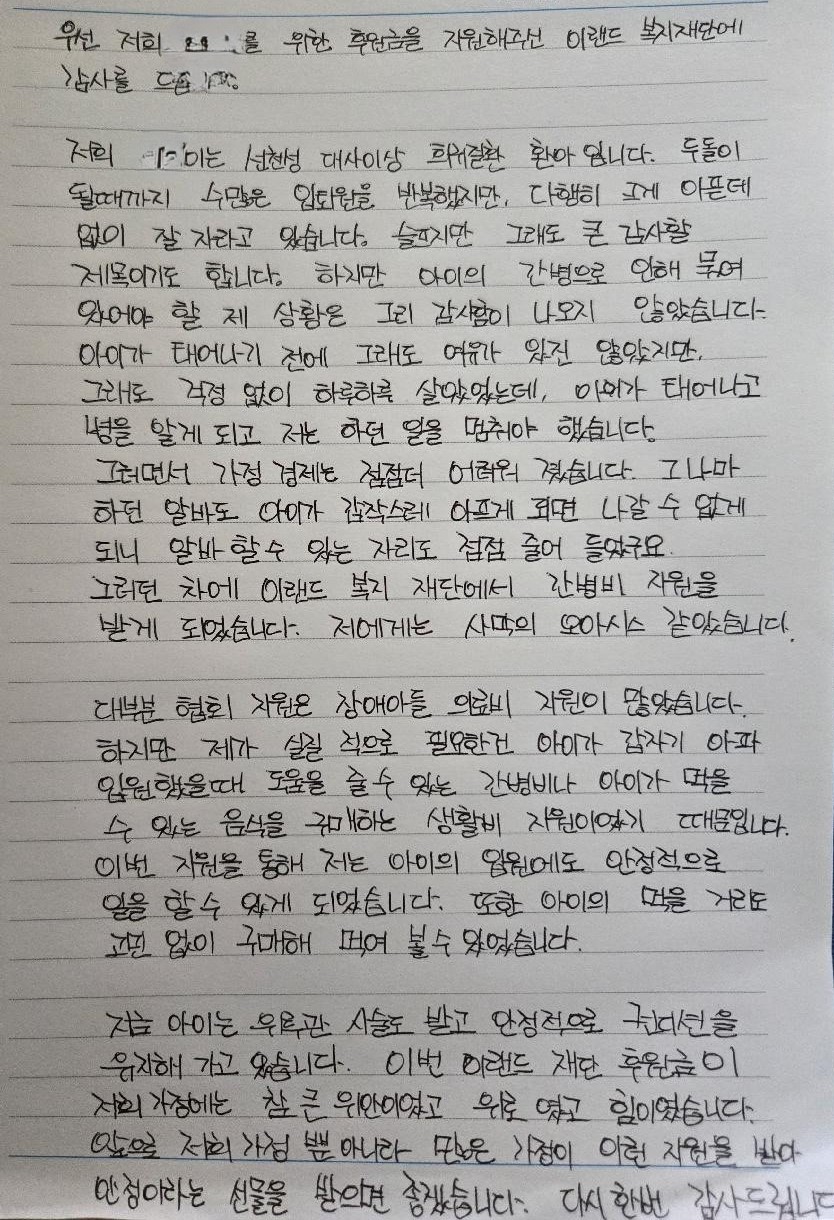 우선 저희 를 위한 후원금을 지원해주신 이랜드 복지재단에
감사를 드립니다.
저희 이는 선천성 대사이상 희귀질환 환아 입니다. 두돌이
될때까지 수많은 입퇴원을 반복했지만, 다행히 크게 아픈데
없이 잘 자라고 있습니다. 슬프지만 그래도 큰 감사할
제목이기도 합니다. 하지만 아이의 간병으로 인해 묶여
있어야 할 제 상황은 그리 감사함이 나오지 않았습니다.
아이가 태어나기 전에 그래도 여유가 있진 않았지만,
그래도 걱정 없이 하루하루 살았었는데, 아이가 태어나고
병을 알게 되고 저는 하던 일을 멈춰야 했습니다.
그러면서 가정 경제는 점점더 어려워 졌습니다. 그나마
하던 알바도 아이가 갑작스레 아프게 되면 나갈 수 없게
되니 알바 할 수 있는 자리도 점점 줄어 들었구요.
그러던 차에 이랜드 복지 재단에서 간병비 지원을
받게 되었습니다. 저에게는 사막의 오아시스 같았습니다.
대부분 협회 지원은 장애아들 의료비 지원이 많았습니다.
하지만 제가 실질 적으로 필요한건 아이가 갑자기 아파
입원했을때 도움을 줄 수 있는 간병비나 아이가 먹을
수 있는 음식을 구매하는 생활비 지원이였기 때문입니다.
이번 지원을 통해 저는 아이의 입원에도 안정적으로
일을 할 수 있게 되었습니다. 또한 아이의 먹을 거리도
고민 없이 구매해 먹여 볼 수 있었습니다.
지금 아이는 위루관 시술도 받고 안정적으로 컨디션을
유지해 가고 있습니다. 이번 이랜드 재단 후원금이
저희 가정에는 참 큰 위안이였고 위로 였고 힘이였습니다.
앞으로 저희 가정 뿐 아니라 많은 가정이 이런 지원을 받아
안정이라는 선물을 받으면 좋겠습니다. 다시 한번 감사드립니다